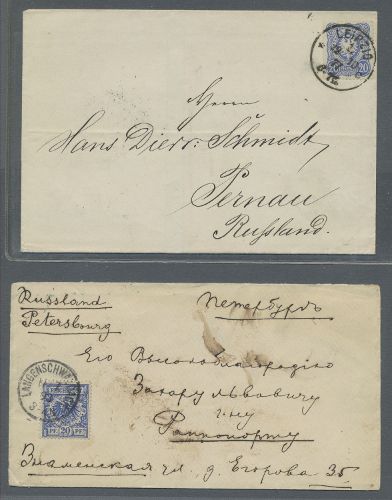 LEIPZIG
20
Herrn
Hans Dier. Schmidt,
Pernau
Russland.
Russland
Petersbourg
Петербургъ
LANGENSCHW
20
Его Высокоблагородію
Захару Львовичу
г-ну
Раппопорту
Знаменская ул. д. Егорова 35